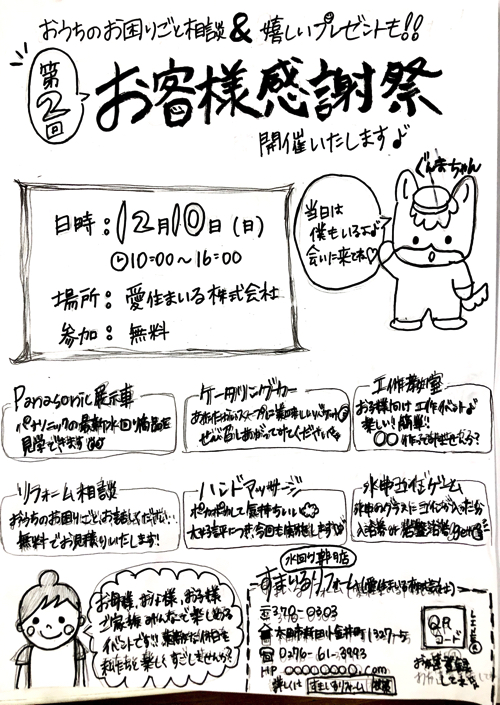 おうちのお困りごと相談 & 嬉しいプレゼントも!!
第2回
お客様感謝祭
開催いたします♪
日時:12月10日(日)
10:00~16:00
場所:愛住まいる株式会社
参加:無料
ぐんまちゃん
当日は
僕もいるよ♪
会いに来てね♡
Panasonic展示車
パナソニックの最新水回り備品を
見学できます
ケータリングカー
ぜひ召しあがってみてくださいね
工作教室
お子様向け工作イベント♪
楽しい!簡単!
リフォーム相談
おうちのお困りごとお話しください…
無料でお見積りいたします!
ハンドマッサージ
ポカポカして気持ちいい
大好評につき、今回も実施します
水中コインゲーム
水中のグラスにコインが入った分
お母様、お父様、お子様
ご家族みんなで楽しめる
イベントです!!
私たちと楽しくすごしませんか?
水回り専門店
すまいるリフォーム(愛住まいる株式会社)
〒370-0303
0276-61-3993
HP 〇〇〇〇〇〇〇.com
詳しくは すまいるリフォーム 検索
QR
コード